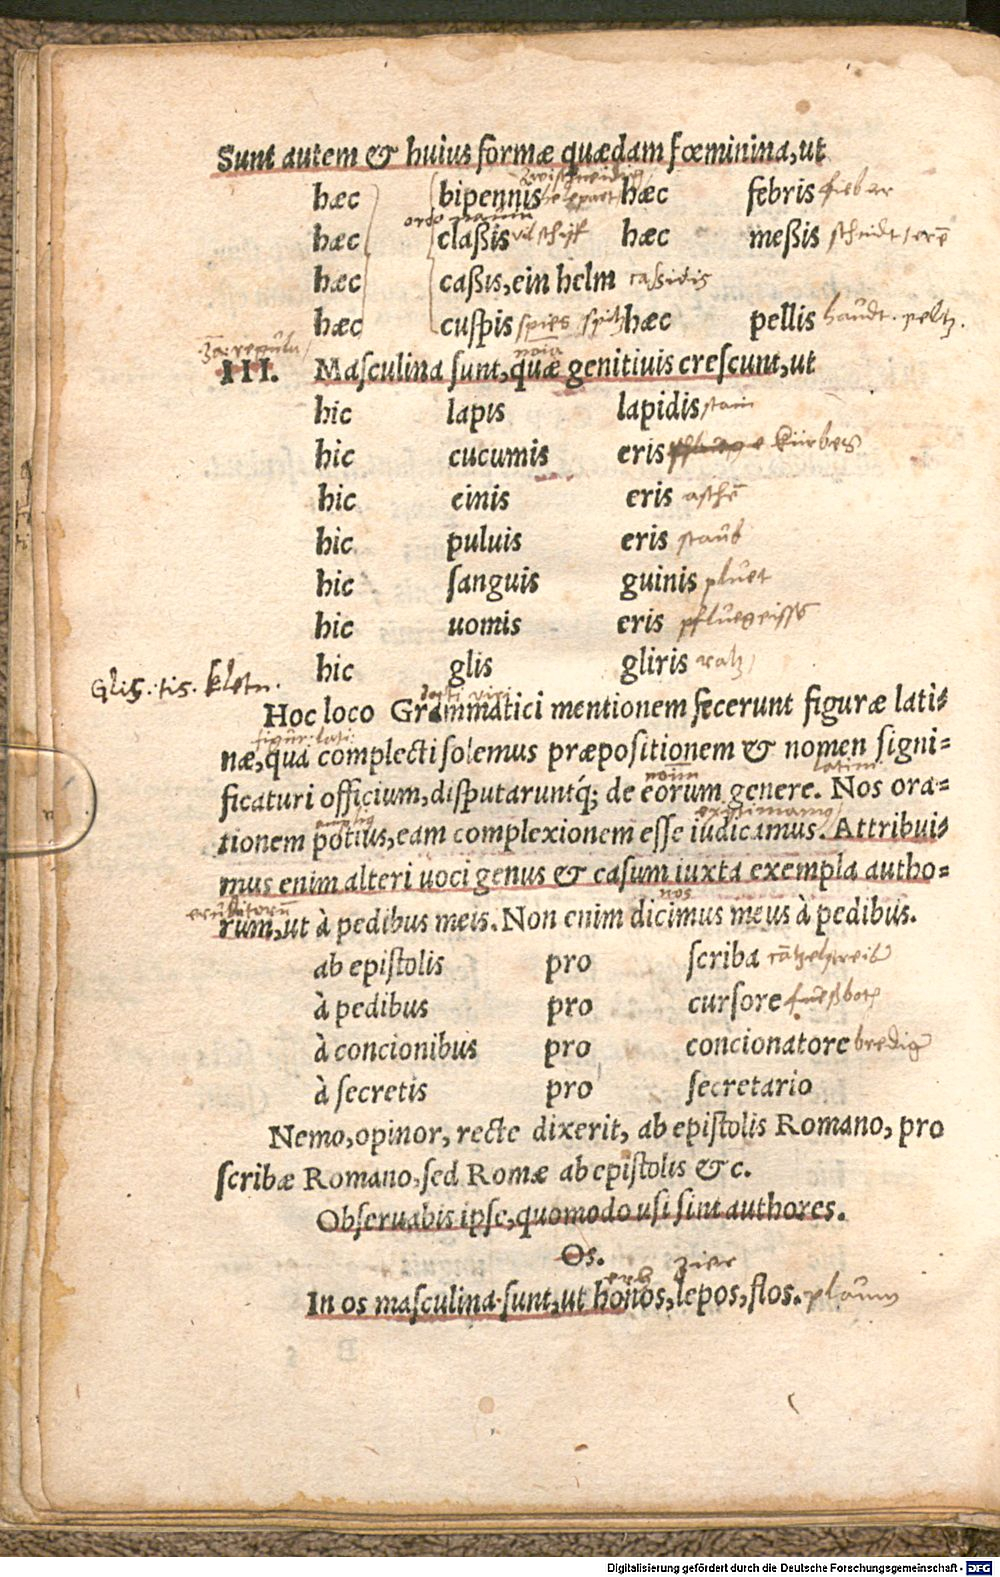 Sunt autem & huius formæ quædam fœminina, ut
hæc bipennis hæc febris
hæc claßis hæc meßis
hæc caßis, ein helm caßidis
hæc cuspis spies spitz hæc pellis haudt. peltz.
III. Masculina sunt, quæ genitiuis crescunt, ut
hic lapis lapidis stain
hic cucumis eris kürbes
hic cinis eris aschē
hic puluis eris staub
hic sanguis guinis pluet
hic uomis eris
hic glis gliris ratz
Glis. tis. kletn.
Hoc loco Grammatici mentionem fecerunt figuræ lati-
næ, qua complecti solemus præpositionem & nomen signi-
ficaturi officium, disputaruntq́; de eorum genere. Nos ora-
tionem potius, eam complexionem esse iudicamus. Attribui-
mus enim alteri uoci genus & casum iuxta exempla autho-
rum, ut à pedibus meis. Non enim dicimus meus à pedibus.
ab epistolis pro scriba
à pedibus pro cursore
à concionibus pro concionatore
à secretis pro secretario
Nemo, opinor, recte dixerit, ab epistolis Romano, pro
scribæ Romano, sed Romæ ab epistolis & c.
Obseruabis ipse, quomodo usi sint authores.
Os.
In os masculina sunt, ut honos, lepos, flos. plaum
Digitalisierung gefördert durch die Deutsche Forschungsgemeinschaft - DFG